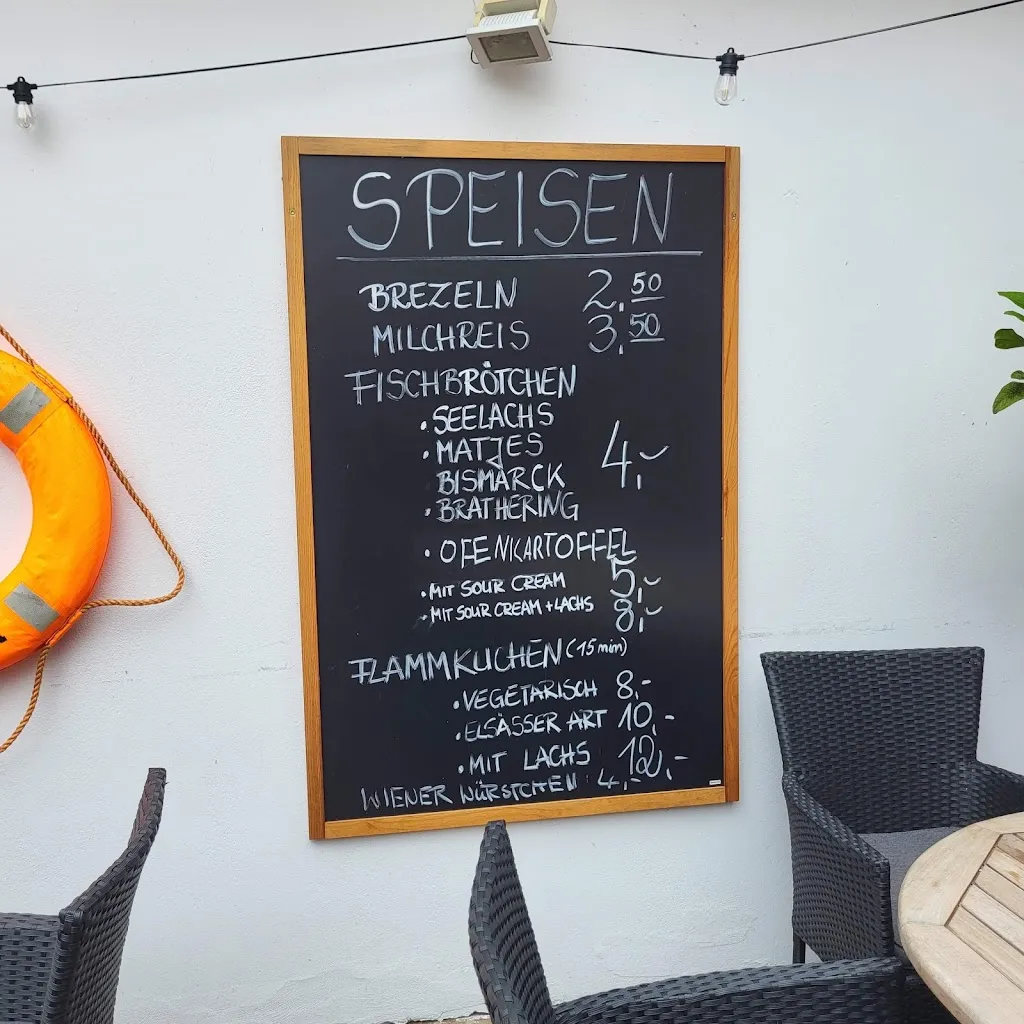 SPEISEN
BREZELN 2,50
MILCHREIS 3,50
FISCHBRÖTCHEN
• SEELACHS
• MATJES 4,-
BISMARCK
• BRATHERING
• OFENKARTOFFEL
• MIT SOUR CREAM 5,-
• MIT SOUR CREAM + LACHS 8,-
FLAMMKUCHEN (15 min)
• VEGETARISCH 8,-
• ELSÄSSER ART 10,-
• MIT LACHS 12,-
WIENER WÜRSTCHEN 4,-